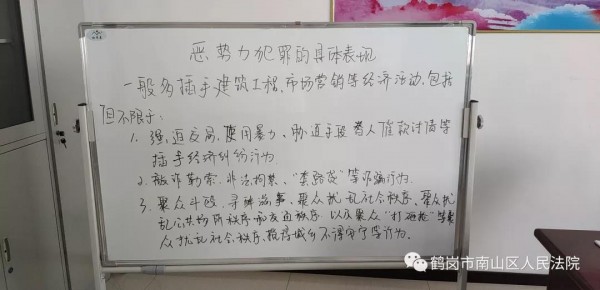 恶势力犯罪的具体表现
一般多插手建筑工程、市场营销等经济活动,包括
但不限于:
1. 强迫交易、使用暴力、胁迫手段替人催款讨债等
插手经济纠纷行为
2. 敲诈勒索、非法拘禁、"套路贷"等诈骗行为.
3. 聚众斗殴、寻衅滋事、聚众扰乱社会秩序、聚众扰
乱公共场所秩序和交通秩序 以及聚众"打砸抢"等聚
众扰乱社会秩序、搅得城乡不得安宁等行为.
鹤岗市南山区人民法院